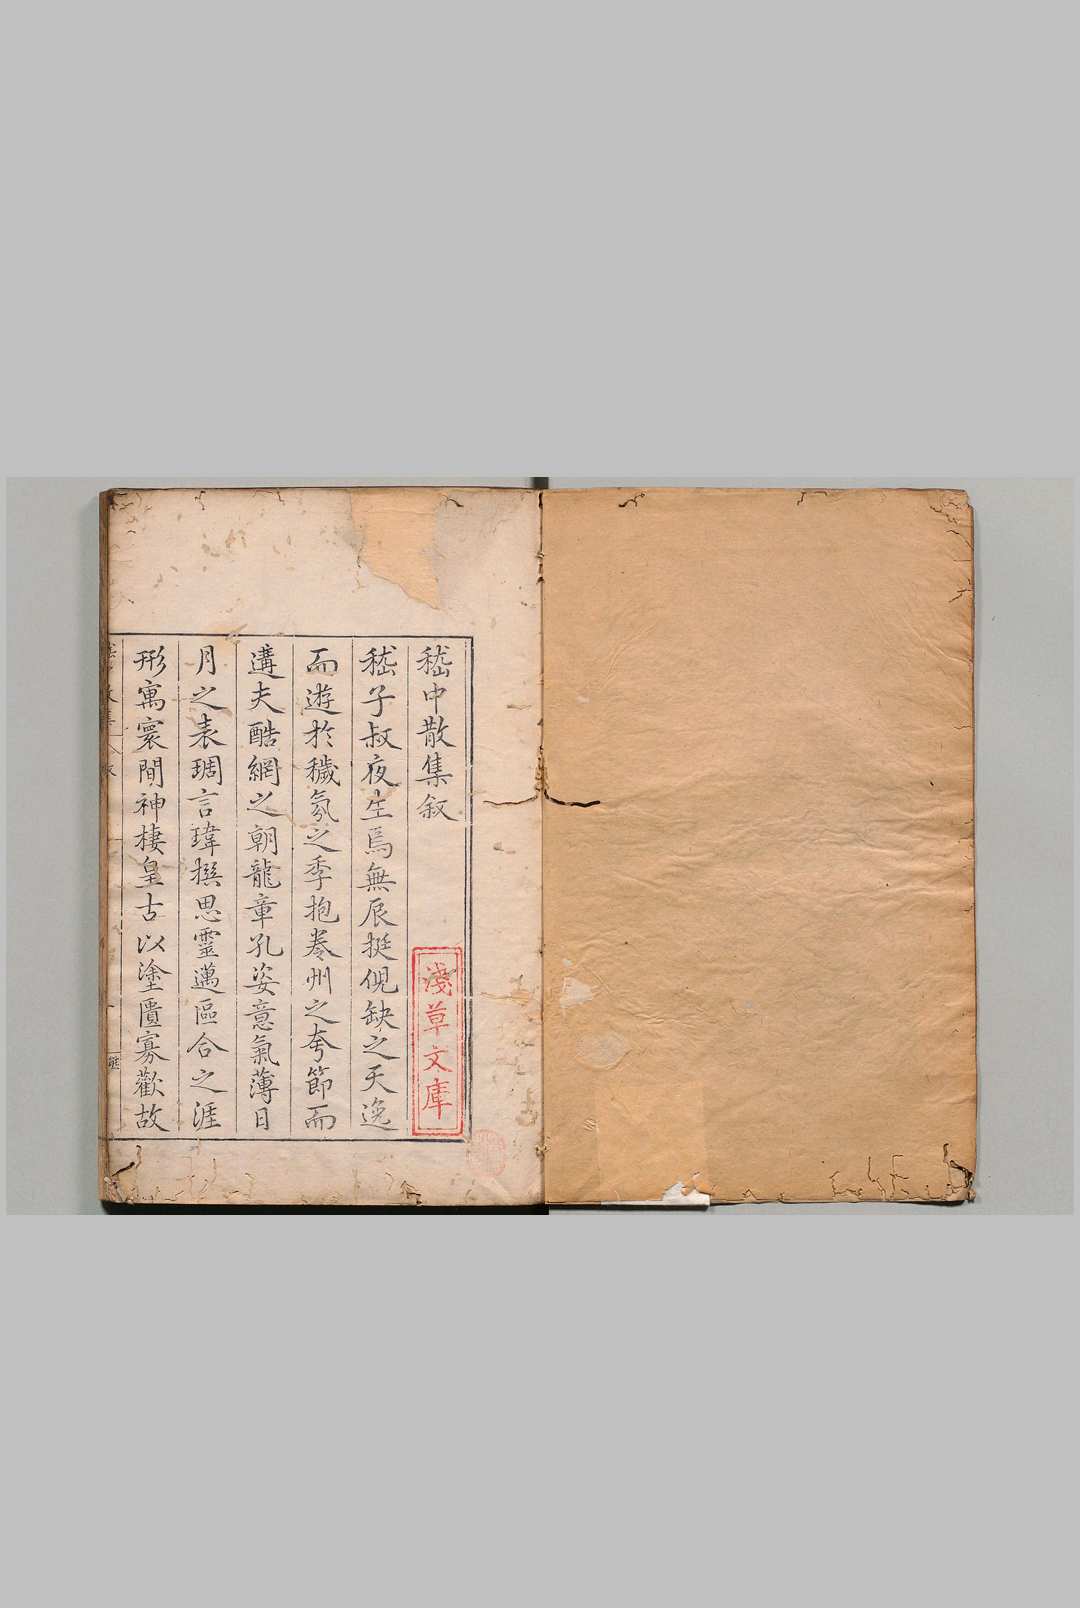 嵇中散集叙
嵇子叔夜生焉無辰挺俔缺之天逸
而遊於穢氛之季抱卷州之夸節而
遘夫酷網之朝龍章孔姿意氣薄日
月之表琱言瑋撰思靈邁區合之涯
形寓寰間神棲皇古以塗匱寡歡故
淺草文庫